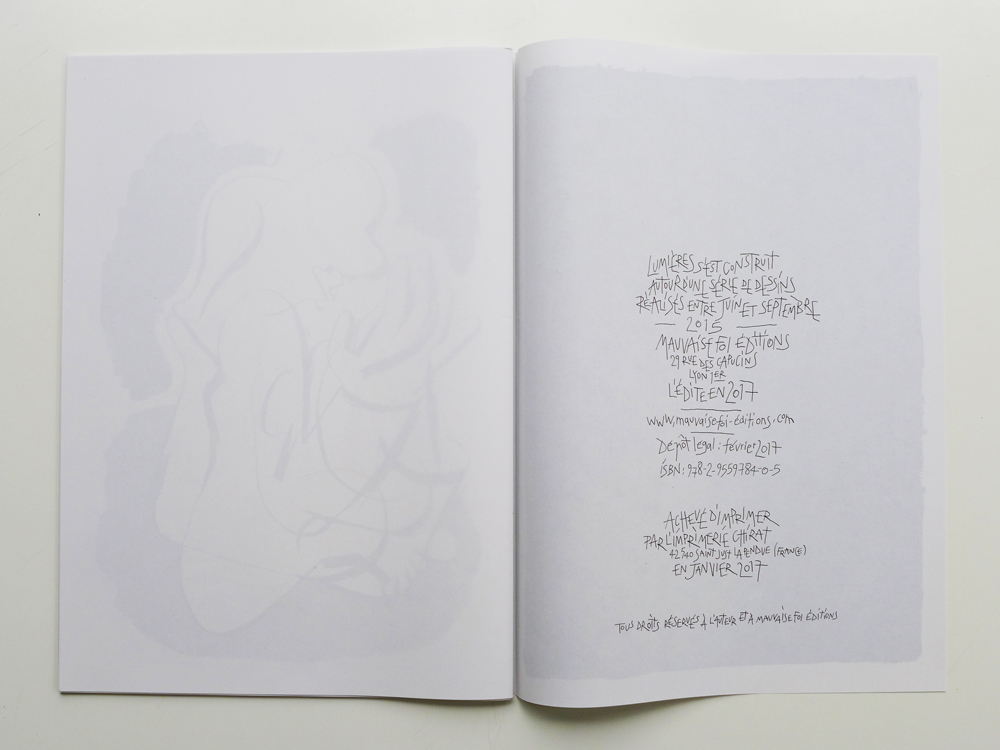 LUMIÈRES S'EST CONSTRUIT
AUTOUR D'UNE SÉRIE DE DESSINS
RÉALISÉS ENTRE JUIN ET SEPTEMBRE
— 2015 —
MAUVAISE FOI ÉDITIONS
29 RUE DES CAPUCINS
LYON 1ER
L'ÉDITE EN 2017
www.mauvaisefoi-éditions.com
Dépôt légal : février 2017
ISBN : 978-2-9559784-0-5
ACHEVÉ D'IMPRIMER
PAR L'IMPRIMERIE CHIRAT
42540 SAINT JUST LA PENDUE (FRANCE)
EN JANVIER 2017
TOUS DROITS RÉSERVÉS À L'AUTEUR ET À MAUVAISE FOI ÉDITIONS